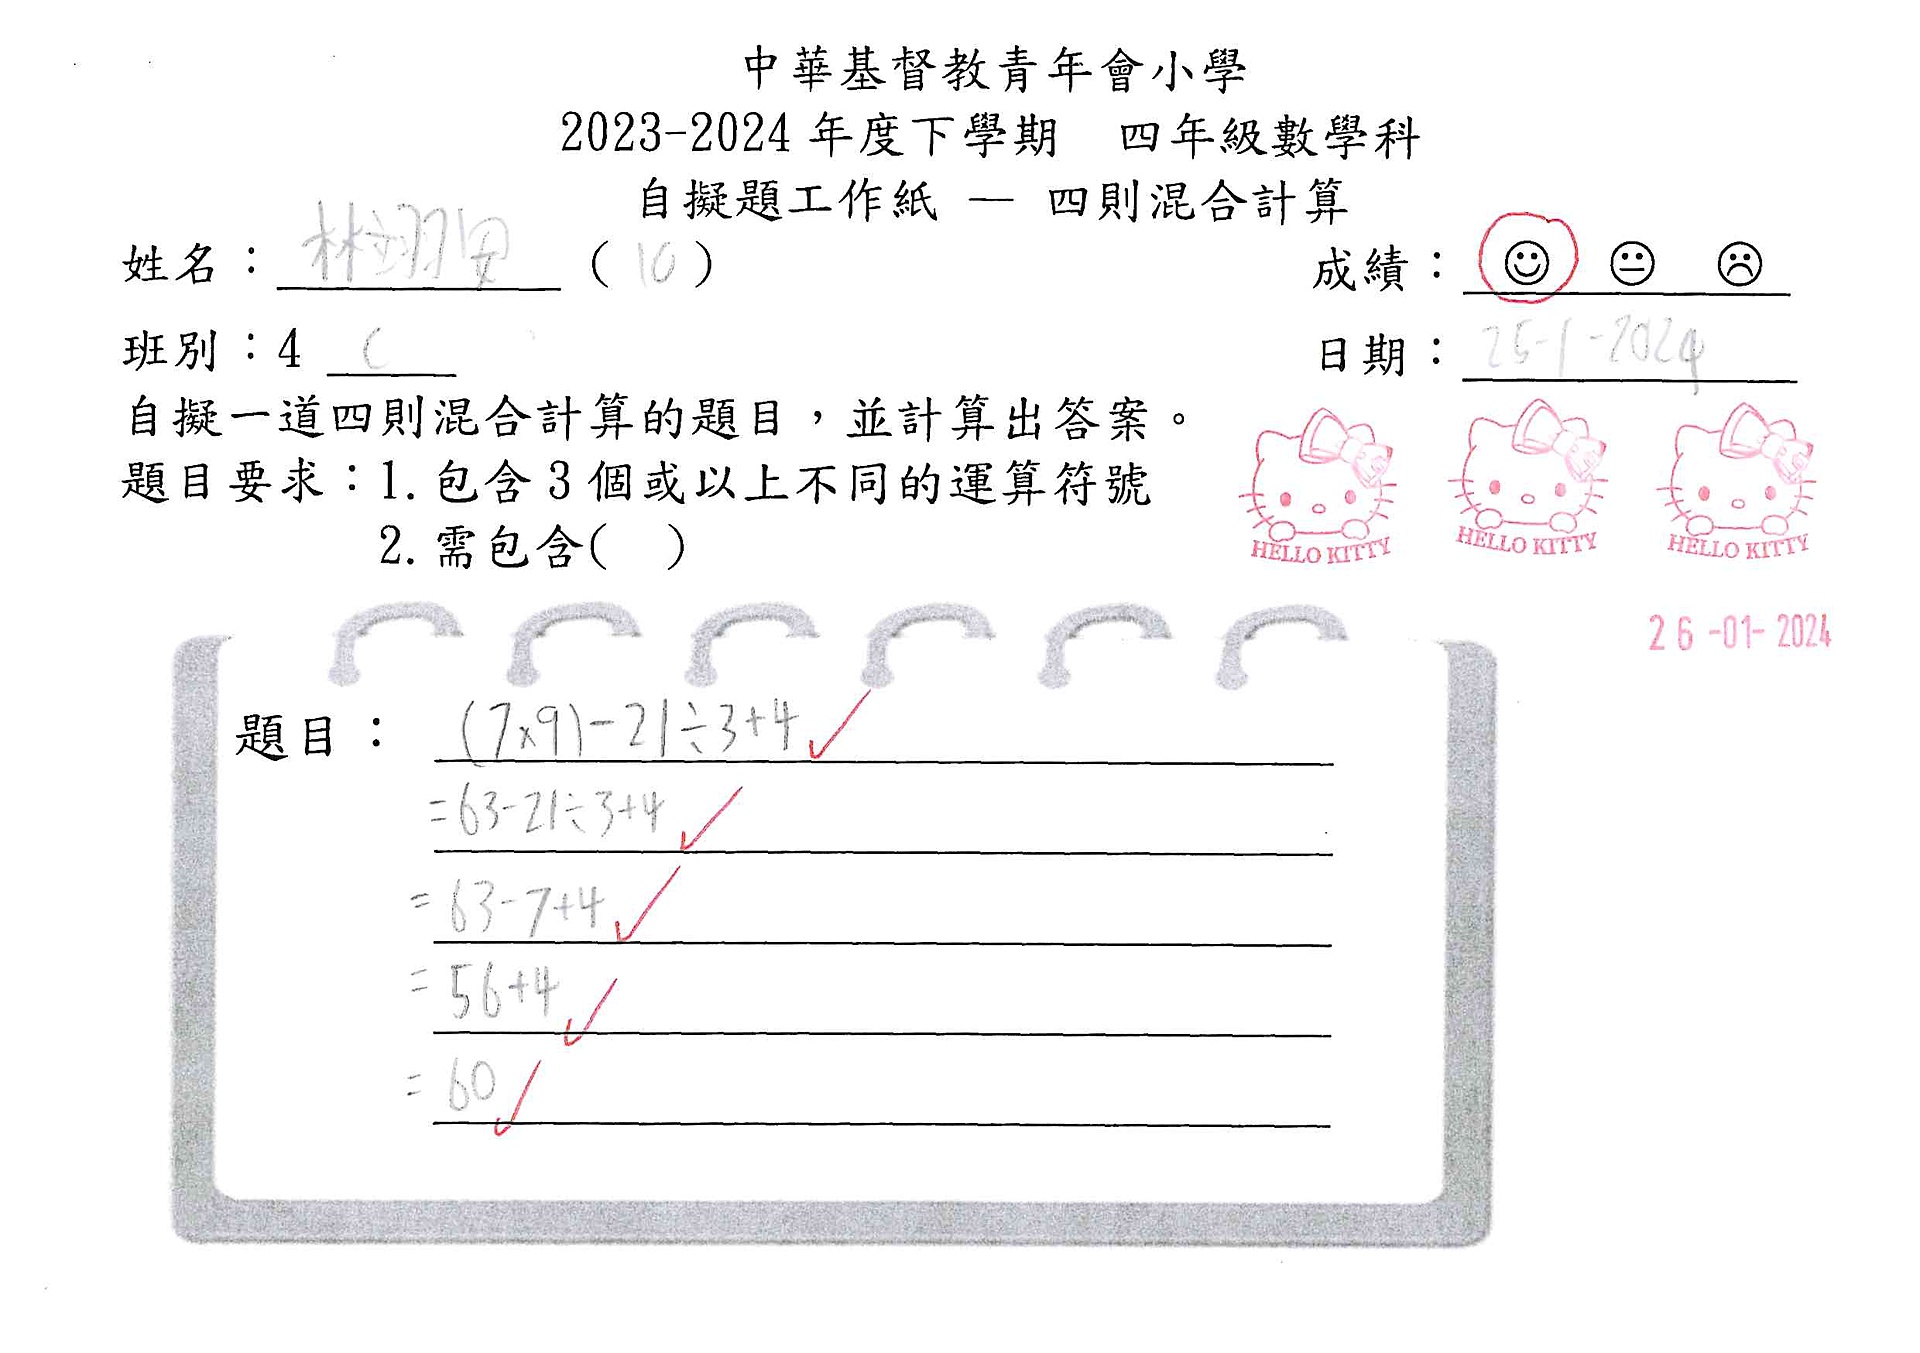 中華基督教青年會小學
2023-2024 年度下學期 四年級數學科
自擬題工作紙 — 四則混合計算
姓名： 林 (10)
成績：
班別：4 C
日期： 25-1-2024
自擬一道四則混合計算的題目，並計算出答案。
題目要求：1. 包含 3 個或以上不同的運算符號
2. 需包含( )
HELLO KITTY HELLO KITTY HELLO KITTY
26-01-2024
題目： (7×9)-21÷3+4
=63-21÷3+4
=63-7+4
=56+4
=60